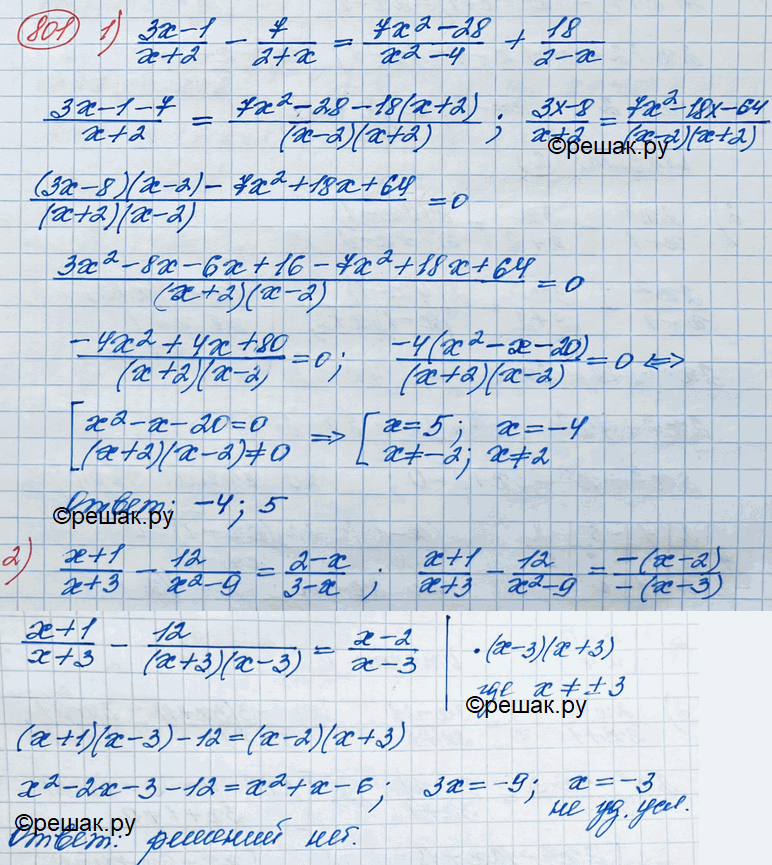 801 1) (3x-1)/(x+2) - 7/(2+x) = (7x²-28)/(x²-4) + 18/(2-x)
(3x-1-7)/(x+2) = (7x²-28-18(x+2))/((x-2)(x+2)) ; (3x-8)/(x+2) = (7x²-18x-64)/((x-2)(x+2))
©решак.ру
((3x-8)(x-2)-7x²+18x+64)/((x+2)(x-2)) = 0
(3x²-8x-6x+16-7x²+18x+64)/((x+2)(x-2)) = 0
(-4x²+4x+80)/((x+2)(x-2)) = 0 ; (-4(x²-x-20))/((x+2)(x-2)) = 0 <=>
[ x²-x-20=0 => [ x=5 ; x=-4
(x+2)(x-2)≠0 x≠-2 ; x≠2
Ответ: -4 ; 5
©решак.ру
2) (x+1)/(x+3) - 12/(x²-9) = (2-x)/(3-x) ; (x+1)/(x+3) - 12/(x²-9) = (-(x-2))/(-(x-3))
(x+1)/(x+3) - 12/((x+3)(x-3)) = (x-2)/(x-3) | ·(x-3)(x+3)
где x≠±3
©решак.ру
(x+1)(x-3)-12=(x-2)(x+3)
x²-2x-3-12=x²+x-6 ; 3x=-9 ; x=-3
не уд. усл.
©решак.ру
Ответ: решений нет.